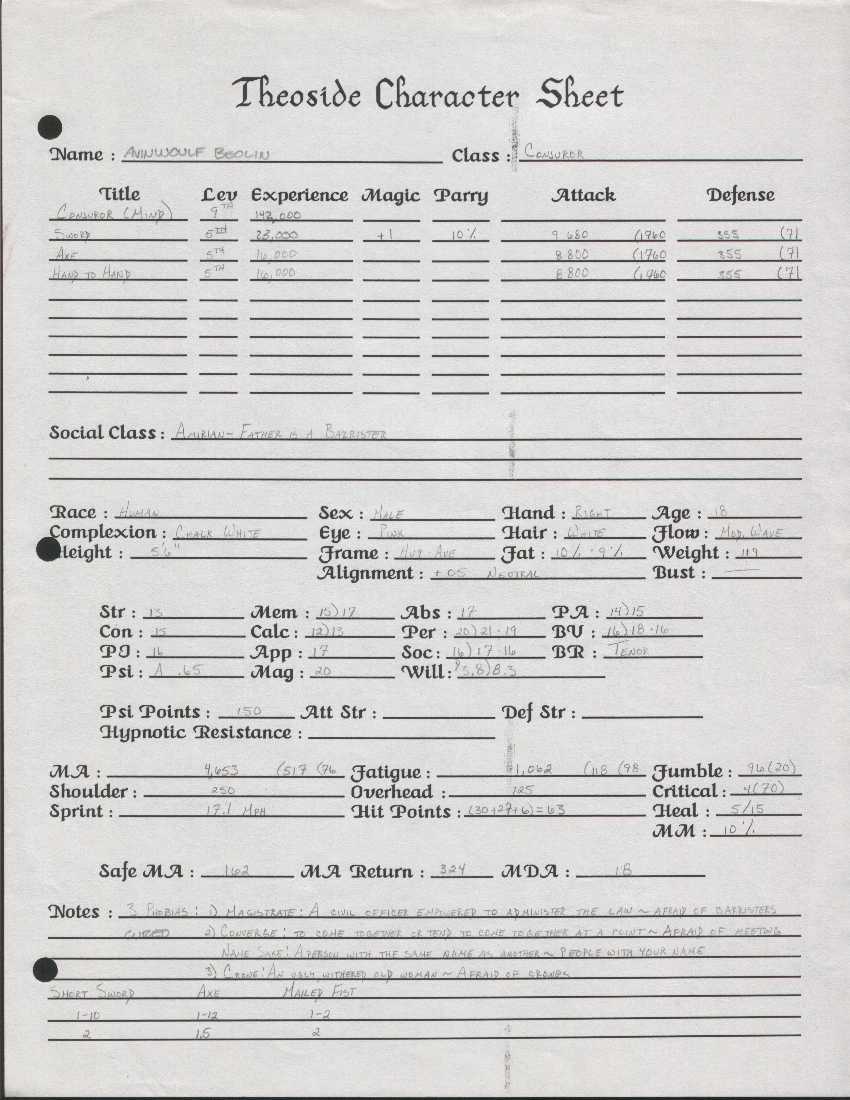 Theoside Character Sheet
Name : AVINWOULF BEOLIN Class : CONJUROR
Title Lev Experience Magic Parry Attack Defense
CONJUROR (MIND) 9TH 142,000
SWORD 5TH 23,000 +1 10% 9 680 (1760 355 (71
AXE 5TH 16,000 8 800 (1760 355 (71
HAND TO HAND 5TH 16,000 8 800 (1760 355 (71
Social Class : AMIRIAN - FATHER IS A BARRISTER
Race : HUMAN Sex : MALE Hand : RIGHT Age : 18
Complexion : CHALK WHITE Eye : PINK Hair : WHITE Flow : MOD. WAVE
Height : 5'6" Frame : AVE Fat : 10% · 9% Weight : 119
Alignment : +05 NEUTRAL Bust : —
Str : 13 Mem : 15)17 Abs : 17 PA : 14)15
Con : 15 Calc : 12)13 Per : 20)21·19 BV : 16)18·16
PJ : 16 App : 17 Soc : 16)17·16 BR : TENOR
Psi : A .65 Mag : 20 Will : 8.3
Psi Points : 150 Att Str : Def Str :
Hypnotic Resistance :
MA : 4,653 (517 (76 Fatigue : 1,062 (118 (98 Fumble : 96(20)
Shoulder : 250 Overhead : 125 Critical : 4(70)
Sprint : 17.1 MPH Hit Points : (30+27+6)=63 Heal : 5/15
MM : 10%
Safe MA : 162 MA Return : 324 MDA : 18
Notes : 3 PHOBIAS: 1) MAGISTRATE: A CIVIL OFFICER EMPOWERED TO ADMINISTER THE LAW ~ AFRAID OF BARRISTERS
CURED 2) CONVERGE: TO COME TOGETHER OR TEND TO COME TOGETHER AT A POINT ~ AFRAID OF MEETING
NAME SAKE: A PERSON WITH THE SAME NAME AS ANOTHER ~ PEOPLE WITH YOUR NAME
3) CRONE: AN UGLY WITHERED OLD WOMAN ~ AFRAID OF CRONES
SHORT SWORD AXE MAILED FIST
1-10 1-12 1-2
2 1.5 2